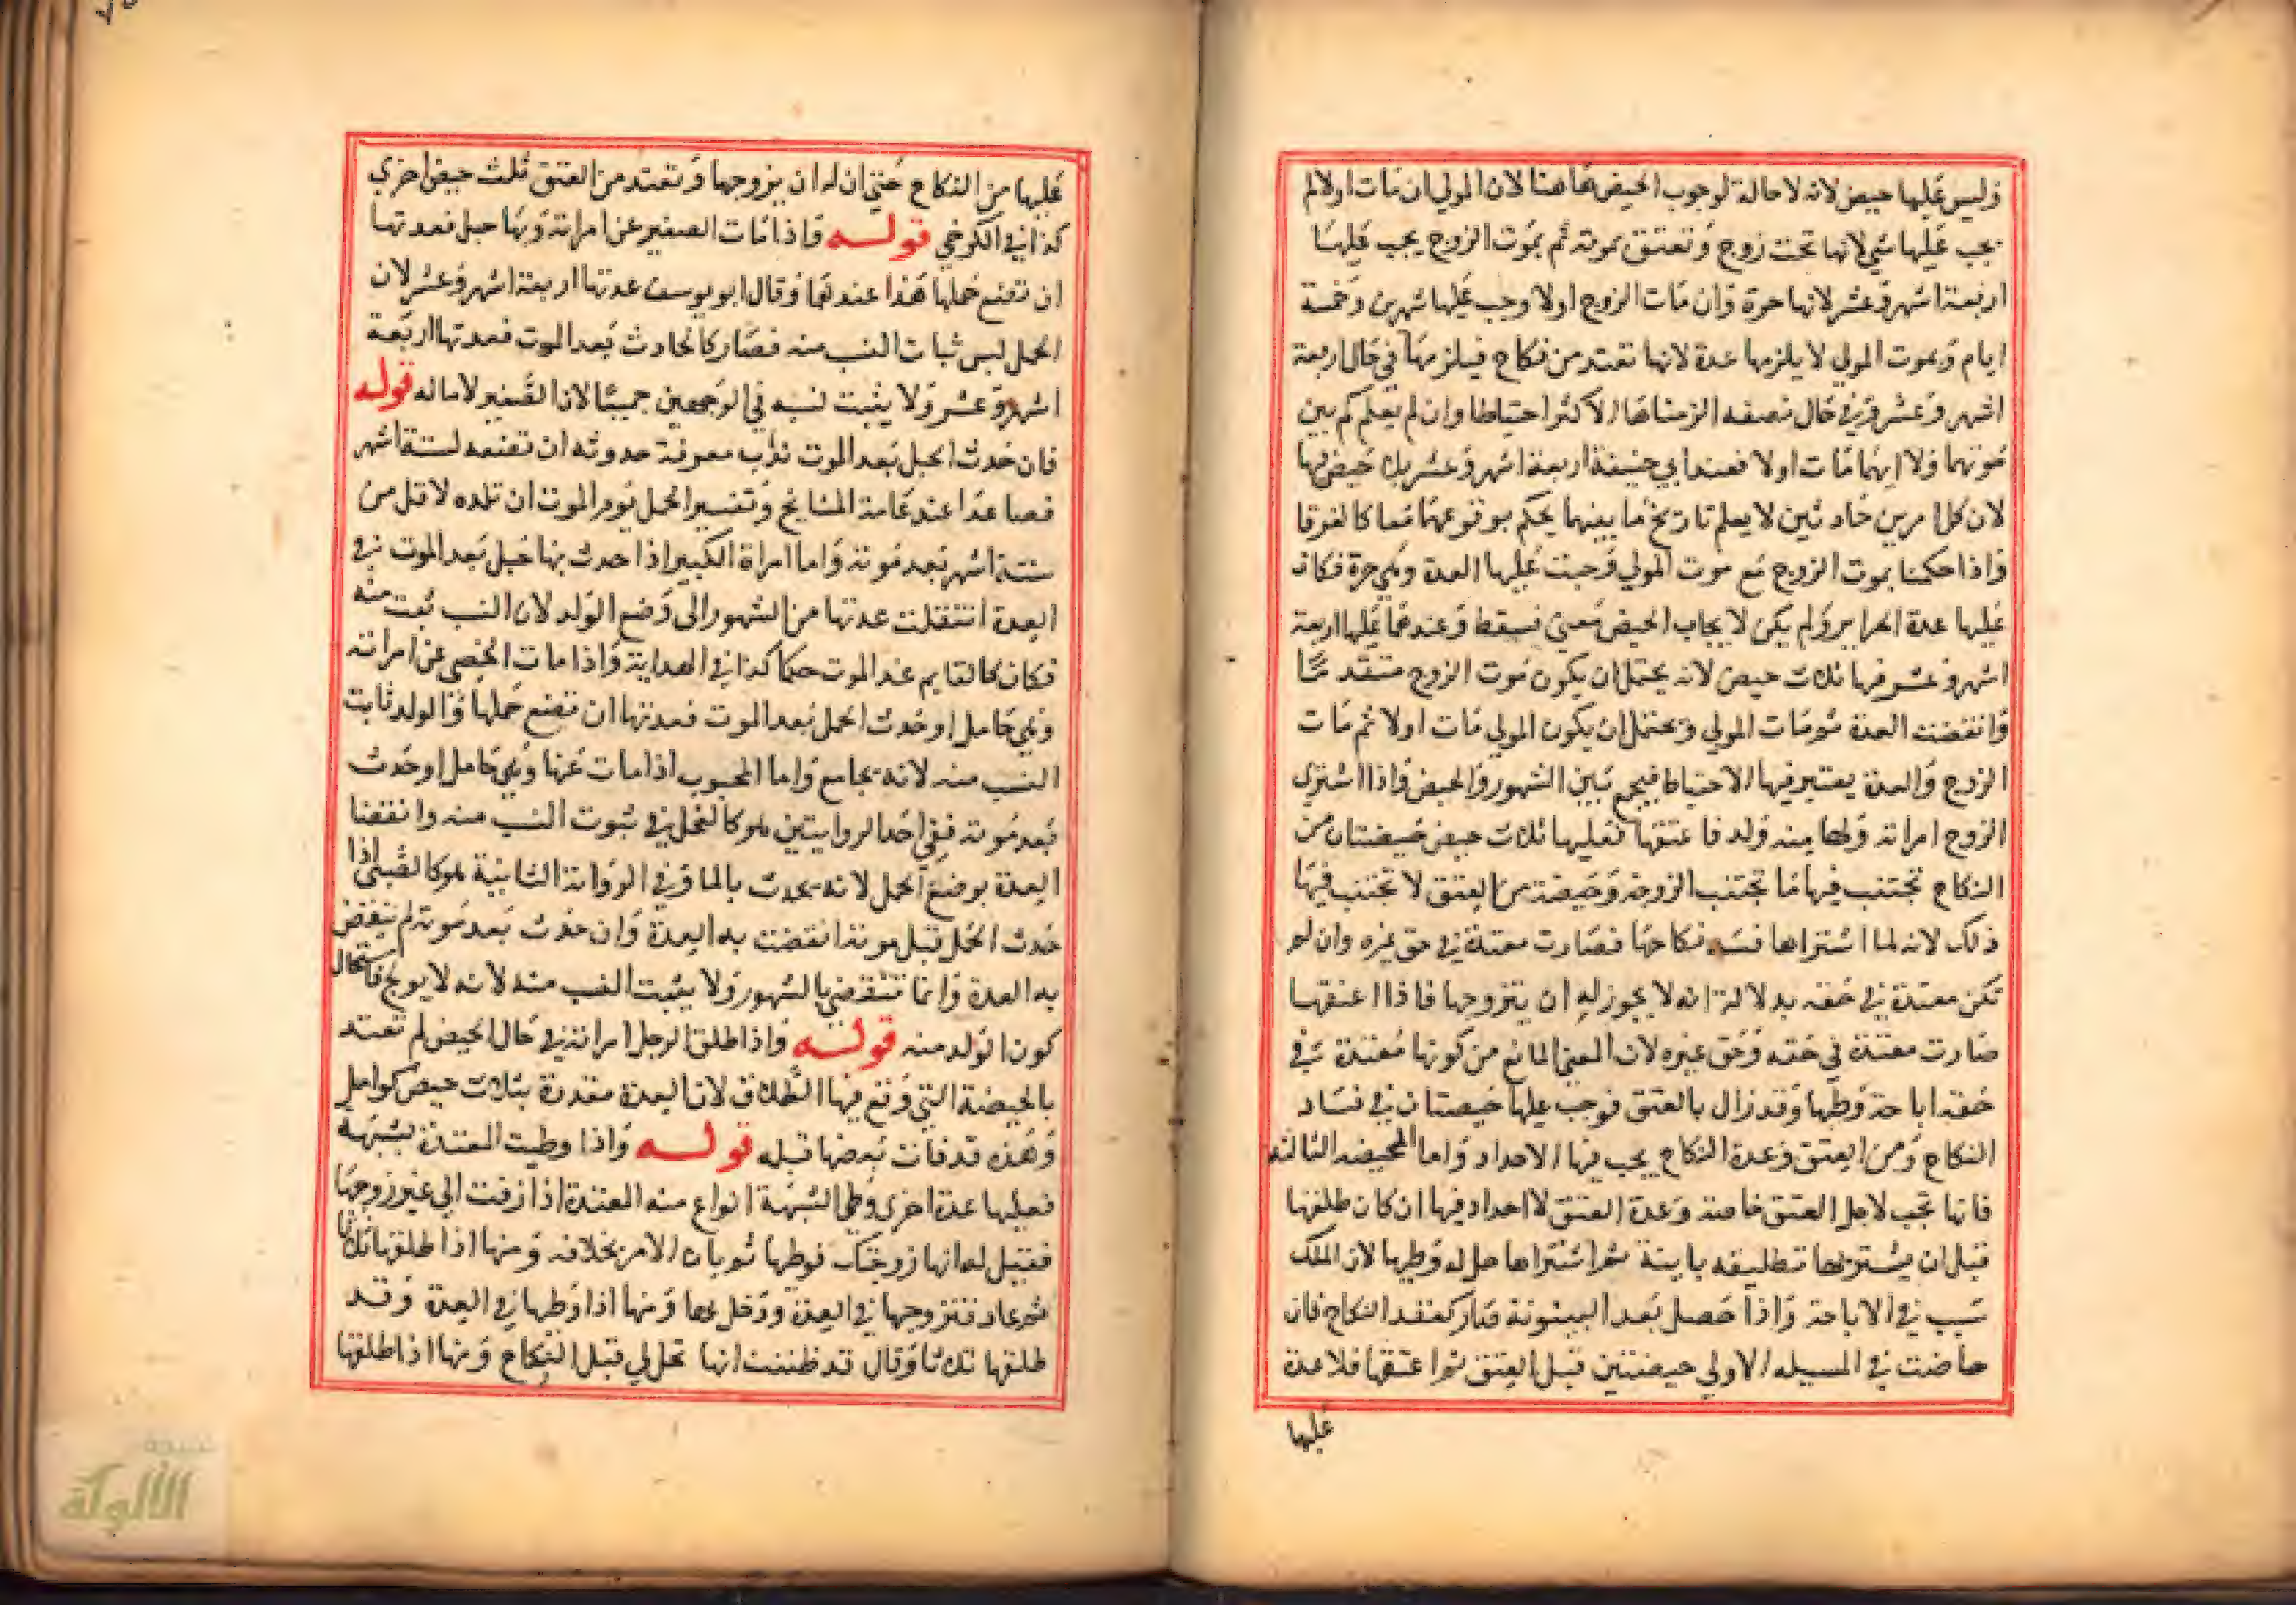 وليس عليها حيض لانه لا حالة لوجوب الحيض هاهنا لان المولي ان مات اولا لم
يجب عليها شي لانها تحت زوج وتعتق بموته ثم بموت الزوج يجب عليها
اربعة اشهر وعشر لانها حرة وان مات الزوج اولا وجب عليها شهرين وخمسة
ايام وبموت المولي لا يلزمها عدة لانها تعتد من نكاح فيلزمها في حال اربعة
اشهر وعشر وفي حال نصفه الزمناها الاكثر احتياطا وان لم يعلم كم بين
موتهما ولا ايهما مات اولا فعند ابي حنيفة اربعة اشهر وعشر بلا حيض فيها
لان كل امرين حادثين لا يعلم تاريخ ما بينهما يحكم بوقوعهما معا كالغرقا
واذا حكمنا بموت الزوج مع موت المولي وجبت عليها العدة وهي حرة فكان
عليها عدة الحراير ولم يكن لايجاب الحيض معني فسقط وعندهما عليها اربعة
اشهر وعشر فيها ثلاث حيض لانه يحتمل ان يكون موت الزوج متقدما
وانقضت العدة ثم مات المولي ويحتمل ان يكون المولي مات اولا ثم مات
الزوج والعدة يعتبر فيها الاحتياط فيجمع بين الشهور والحيض واذا اشتري
الزوج امراته ولها منه ولد فاعتقها فعليها ثلاث حيض حيضتان من
النكاح تجتنب فيها ما تجتنب الزوجة وحيضة من العتق لا تجتنب فيها
ذلك لانه لما اشتراها فسد نكاحها فصارت معتدة في حق غيره وان لم
تكن معتدة في حقه بدلالة انه لا يجوز له ان يتزوجها فاذا اعتقها
صارت معتدة في حقه وحق غيره لان المعني المانع من كونها معتدة في
حقه اباحة وطيها وقد زال بالعتق فوجب عليها حيضتان في فساد
النكاح ومن العتق وعدة النكاح يجب فيها الاحداد واما الحيضة الثالثة
فانها تجب لاجل العتق خاصة وعدة العتق لا احداد فيها ان كان طلقها
قبل ان يشتريها تطليقة باينة ثم اشتراها حل له وطيها لان الملك
سبب في الاباحة واذا حصل بعد البينونة صار كعقد النكاح فان
حاضت في المسيلة الاولي حيضتين قبل العتق ثم اعتقها فلا عدة
عليها
عليها من النكاح حتي ان له ان يزوجها وتعتد من العتق ثلث حيض اخري
كذا في الكرخي قوله واذا مات الصغير عن امراته وبها حبل فعدتها
ان تضع حملها هذا عندهما وقال ابو يوسف عدتها اربعة اشهر وعشر لان
الحمل ليس ثبات النسب منه فصار كالحادث بعد الموت فعدتها اربعة
اشهر وعشر ولا يثبت نسبه في الوجهين جميعا لان الصغير لا ما له قوله
فان حدث الحبل بعد الموت معرفة حدوثه ان تضعه لستة اشهر
فصاعدا عند عامة المشايخ وتفسير الحمل يوم الموت ان تلده لاقل من
ستة اشهر بعد موته واما امراة الكبير اذا حدث بها حبل بعد الموت في
العدة انتقلت عدتها من الشهور الى وضع الولد لان النسب ثبت منه
فكان كالقايم عند الموت حكما كذا في الهداية واذا مات الخصي عن امراته
وهي حامل او حدث الحمل بعد الموت فعدتها ان تضع حملها والولد ثابت
النسب منه لانه يجامع واما المجبوب اذا مات عنها وهي حامل او حدث
بعد موته ففي احدا لروايتين هو كالفحل في ثبوت النسب منه وانقضا
العدة بوضع الحمل لانه يحدث بالما وفي الرواية الثانية هو كالصبي اذا
حدث الحمل قبل موته انقضت به العدة وان حدث بعد موته لم تنقض
به العدة وانما تنقضي بالشهور ولا يثبت النسب منه لانه لا يولج فاستحال
كون الولد منه قوله واذا طلق الرجل امراته في حال الحيض لم تعتد
بالحيضة التي وقع فيها الطلاق لان العدة مقدرة بثلاث حيض كوامل
وهذه قد فات بعضها قبله قوله واذا وطيت المعتدة بشبهة
فعليها عدة اخري وطي الشبهة انواع منه المعتدة اذا زفت الي غير زوجها
فقيل له انها زوجتك فوطها ثم بان الامر بخلافه ومنها اذا طلقها ثلاثا
ثم عاد فتزوجها في العدة ودخل بها ومنها اذا وطيها في العدة وقد
طلقها ثلاثا وقال قد ظننت انها تحل لي قبل النكاح ومنها اذا طلقها
الألوكة